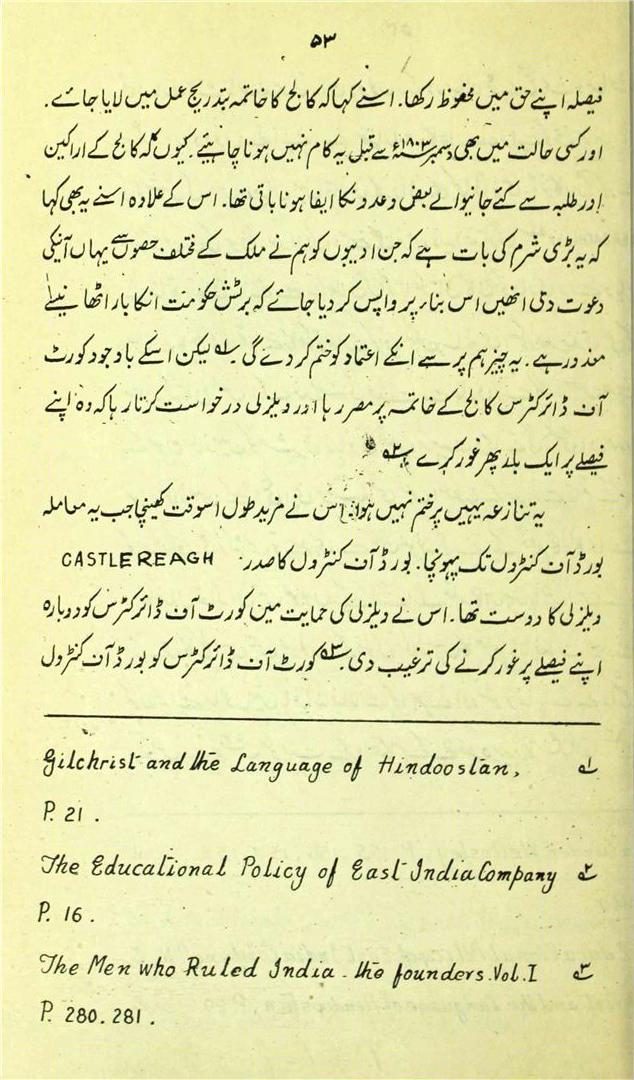 ۵۳
فیصلہ اپنے حق میں محفوظ رکھا۔ اسنے کہا کہ کالج کا خاتمہ بتدریج عمل میں لایا جائے۔
اور کسی حالت میں بھی دسمبر ۱۸۰۳ء سے قبل یہ کام نہیں ہونا چاہئیے۔ کیوں کہ کالج کے اراکین
اور طلبہ سے کئے جانیوالے بعض وعدونکا ایفا ہونا باقی تھا۔ اس کے علاوہ اسنے یہ بھی کہا
کہ یہ بڑی شرم کی بات ہے کہ جن ادیبوں کو ہم نے ملک کے مختلف حصوں سے یہاں آنیکی
دعوت دی انھیں اس بناء پر واپس کر دیا جائے کہ برٹش حکومت انکا بار اٹھا نیسے
معذور ہے۔ یہ چیز ہم پر سے انکے اعتماد کو ختم کر دے گی ؎۱ لیکن اسکے باوجود کورٹ
آف ڈائرکٹرس کالج کے خاتمہ پر مصر رہا اور ویلزلی درخواست کرتا رہا کہ وہ اپنے
فیصلے پر ایک بار پھر غور کرے ؎۲
یہ تنازعہ یہیں پر ختم نہیں ہوا۔ اس نے مزید طول اسوقت کھینچا جب یہ معاملہ
بورڈ آف کنٹرول تک پہونچا۔ بورڈ آف کنٹرول کا صدر CASTLEREAGH
ویلزلی کا دوست تھا۔ اس نے ویلزلی کی حمایت میں کورٹ آف ڈائرکٹرس کو دوبارہ
اپنے فیصلے پر غور کرنے کی ترغیب دی ؎۳ کورٹ آف ڈائرکٹرس کو بورڈ آف کنٹرول
؎۱ Gilchrist and the Language of Hindoostan,
P. 21.
؎۲ The Educational Policy of East India Company
P. 16.
؎۳ The Men who Ruled India - the founders. Vol. I
P. 280. 281.